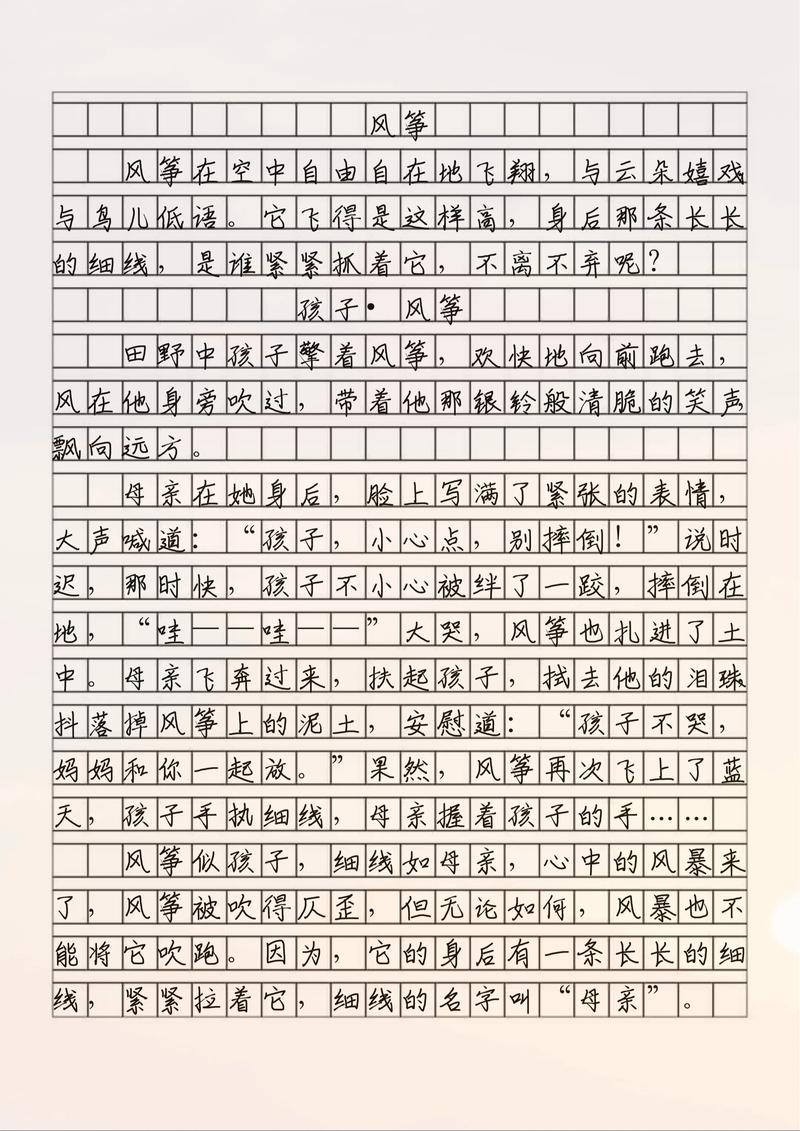 风筝
风筝在空中自由自在地飞翔，与云朵嬉戏
与鸟儿低语。它飞得是这样高，身后那条长长
的细线，是谁紧紧抓着它，不离不弃呢？
孩子• 风筝
田野中孩子擎着风筝，欢快地向前跑去，
风在他身旁吹过，带着他那银铃般清脆的笑声
飘向远方。
母亲在她身后，脸上写满了紧张的表情，
大声喊道：“孩子，小心点，别摔倒！”说时
迟，那时快，孩子不小心被绊了一跤，摔倒在
地，“哇——哇——”大哭，风筝也扎进了土
中。母亲飞奔过来，扶起孩子，拭去他的泪珠
抖落掉风筝上的泥土，安慰道：“孩子不哭，
妈妈和你一起放。”果然，风筝再次飞上了蓝
天，孩子手执细线，母亲握着孩子的手……
风筝似孩子，细线如母亲，心中的风暴来
了，风筝被吹得仄歪，但无论如何，风暴也不
能将它吹跑。因为，它的身后有一条长长的细
线，紧紧拉着它，细线的名字叫“母亲”。